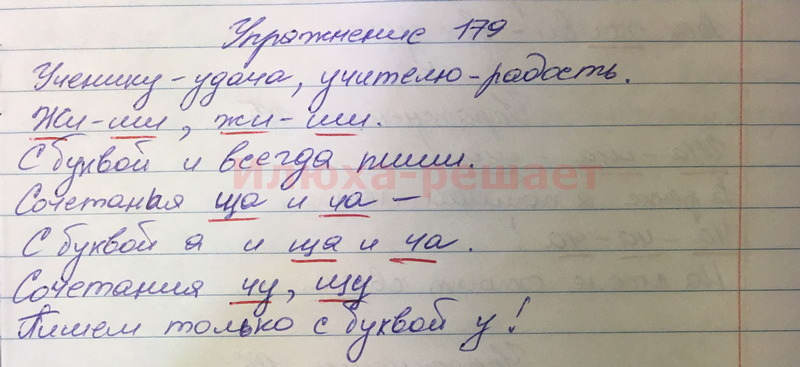 Упражнение 179
Ученику - удача, учителю - радость.
Жи - ши, жи - ши.
С буквой и всегда пиши.
илюха-решает
Сочетания ща и ча -
С буквой а и ща и ча.
Сочетания чу, щу
Пишем только с буквой у!